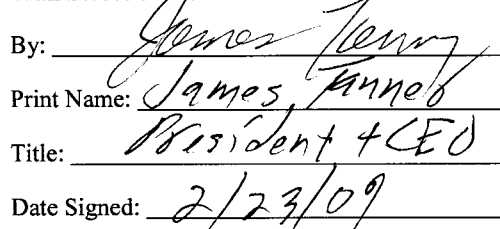 By: James Tanner
Print Name: James Tanner
Title: President + CEO
Date Signed: 2/23/09